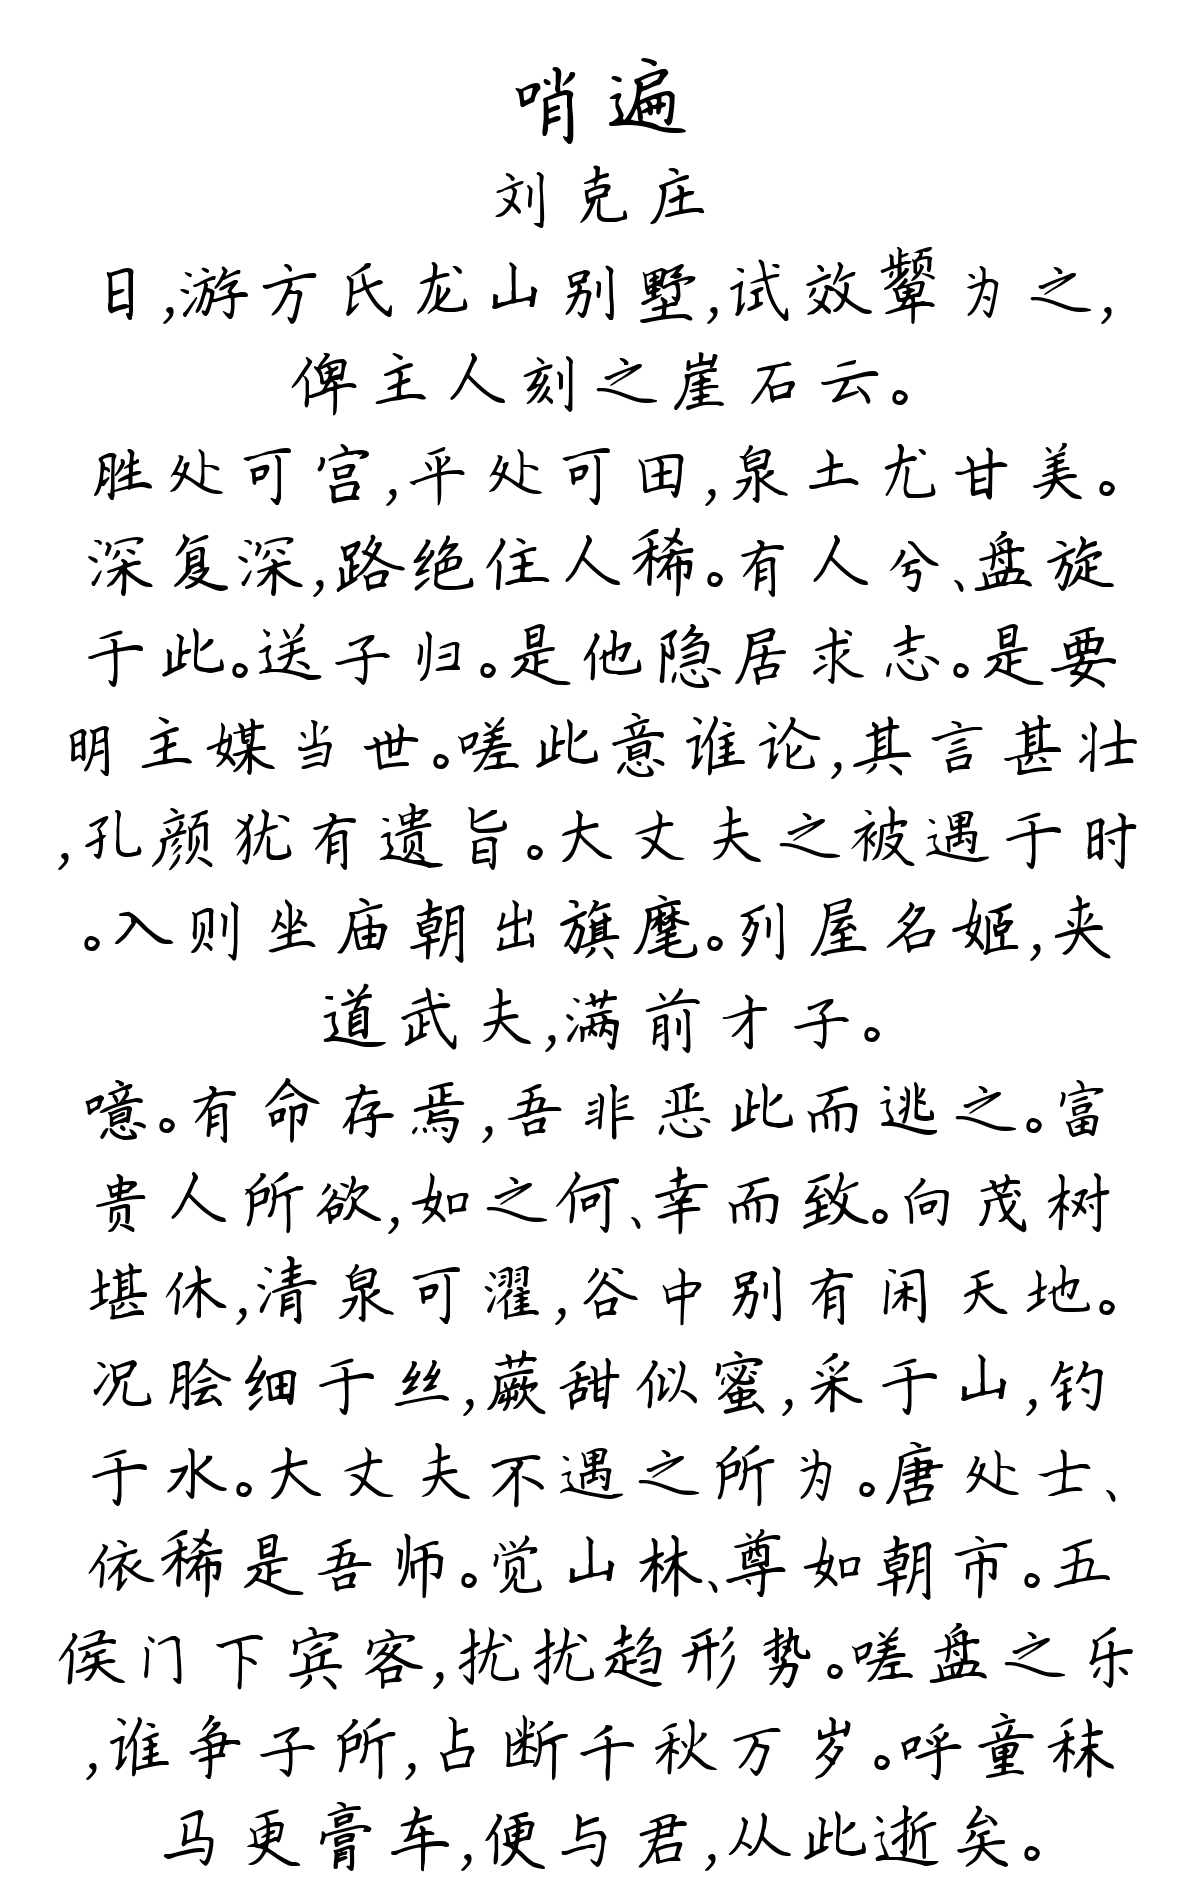 哨遍
刘克庄
日,游方氏龙山别墅,试效颦为之,
俾主人刻之崖石云。
胜处可宫,平处可田,泉土尤甘美。
深复深,路绝住人稀。有人兮、盘旋
于此。送子归。是他隐居求志。是要
明主媒当世。嗟此意谁论,其言甚壮
,孔颜犹有遗旨。大丈夫之被遇于时
。入则坐庙朝出旗麾。列屋名姬,夹
道武夫,满前才子。
噫。有命存焉,吾非恶此而逃之。富
贵人所欲,如之何、幸而致。向茂树
堪休,清泉可濯,谷中别有闲天地。
况脍细于丝,蕨甜似蜜,采于山,钓
于水。大丈夫不遇之所为。唐处士、
依稀是吾师。觉山林、尊如朝市。五
侯门下宾客,扰扰趋形势。嗟盘之乐
,谁争子所,占断千秋万岁。呼童秣
马更膏车,便与君,从此逝矣。